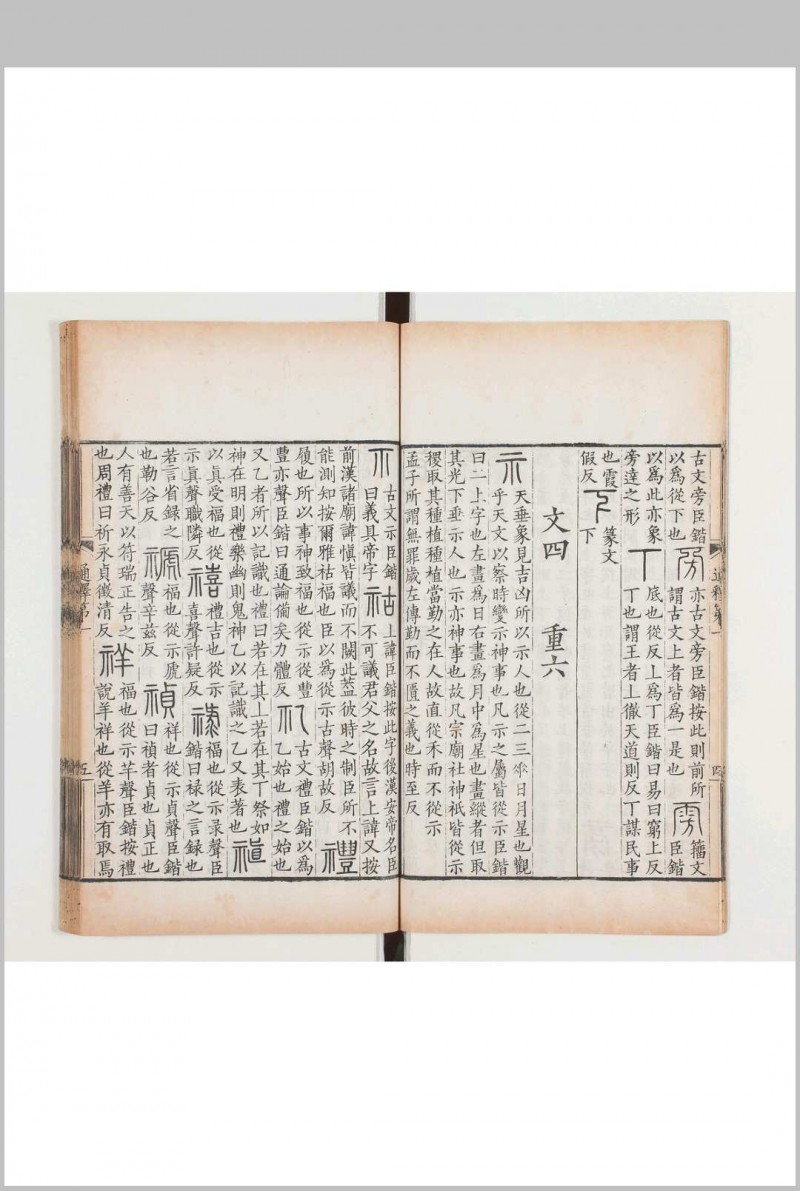 古文旁臣鍇
以爲從下也
㫄
亦古文旁臣鍇按此則前所
謂古文上者皆爲一是也
雱
籒文
臣鍇
以爲此亦象
旁達之形
丅
底也從反上爲丁臣鍇曰易曰窮上反
丁也謂王者上徹天道則反丁謀民事
也霞
假反
下
篆文
下
文四　重六
示
天垂象見吉凶所以示人也從二三𠂹日月星也觀
乎天文以察時變示神事也凡示之屬皆從示臣鍇
曰二上字也左畫爲日右畫爲月中爲星也畫縱者但取
其光下垂示人也示亦神事也故凡宗廟社神祇皆從示
稷取其種植種植當勤之在人故直從禾而不從示
孟子所謂無罪歲左傳勤而不匱之義也時至反
通釋第一
四
𥘅
古文示臣鍇
曰義具帝字
祜
上諱臣鍇按此字後漢安帝名臣
不可議君父之名故言上諱又按
前漢諸廟諱愼皆議而不闕此葢彼時之制臣所不
能測知按爾雅祜福也臣以爲從示古聲胡故反
禮
履也所以事神致福也從示從豐
豐亦聲臣鍇曰通論備矣力體反
𠃞
古文禮臣鍇以爲
乙始也禮之始也
又乙者所以記識也禮曰若在其丄若在其丅祭如
神在明則禮樂幽則鬼神乙以記識之乙又表著也
禛
以眞受福也從
示眞聲職隣反
禧
禮吉也從示
喜聲許疑反
祿
福也從示彔聲臣
鍇曰祿之言録也
若言省録之
也勒谷反
禠
福也從示虒
聲辛兹反
禎
祥也從示貞聲臣鍇
曰禎者貞也貞正也
人有善天以符瑞正告之
也周禮曰祈永貞徵清反
祥
福也從示羊聲臣鍇按禮
說羊祥也從羊亦有取焉
通釋第一
五